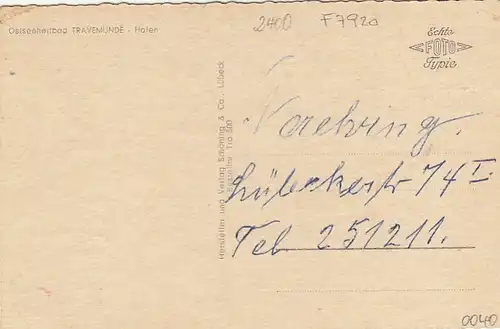 Ostseeheilbad TRAVEMÜNDE - Hafen
2400 F7920
Echte
FOTO
Typie
Hersteller und Verlag Schöning & Co., Lübeck
Lübeckerstr 74 I.
Tel 251211.
0040